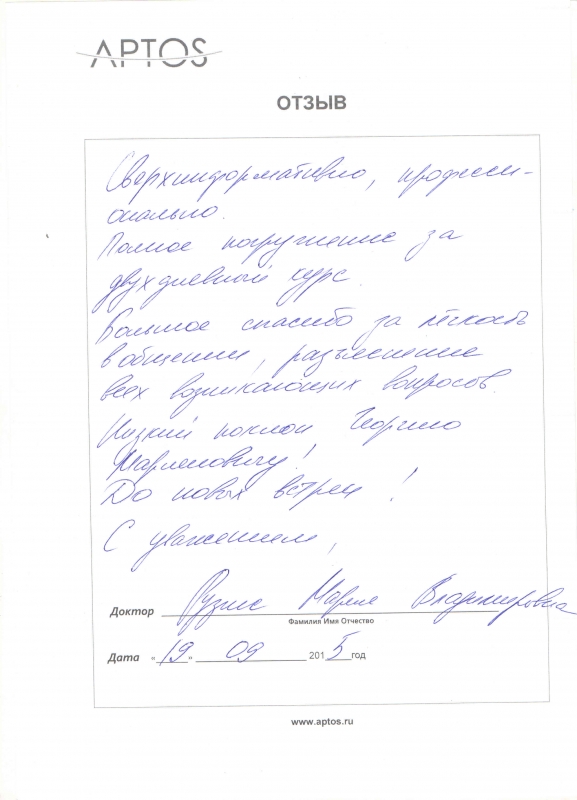 APTOS
ОТЗЫВ
Сверхинформативно, професси-
онально.
Полное погружение за
двухдневный курс.
Большое спасибо за лёгкость
в общении, разъяснение
всех возникающих вопросов.
Низкий поклон Георгию
Марленовичу!
До новых встреч!
С уважением,
Доктор Мария Владимировна
Фамилия Имя Отчество
Дата «19» 09 2015 год
www.aptos.ru